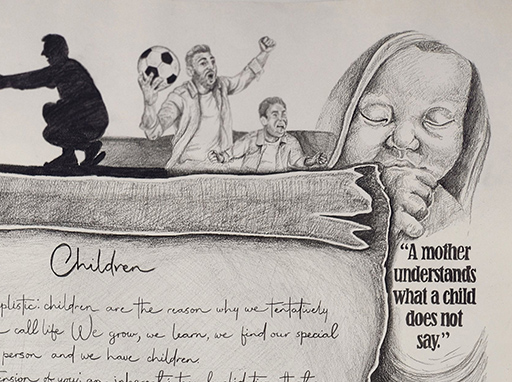 Children
children are the reason why we tentatively
call life. We grow, we learn, we find our special
person and we have children.
of you; an
"A mother
understands
what a child
does not
say."